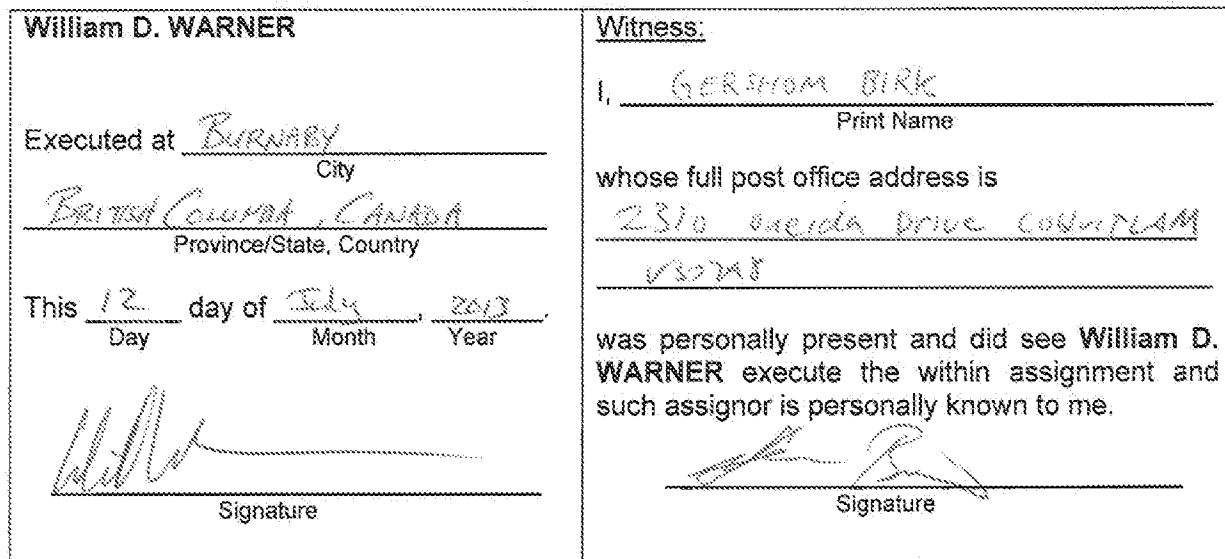 William D. WARNER
Executed at BURNABY
City
BRITISH COLUMBIA, CANADA
Province/State, Country
This 12 day of July, 2013.
Day Month Year
Signature
Witness:
I, GERSHOM BIRK
Print Name
whose full post office address is
2310 oneida Drive COQUITLAM
was personally present and did see William D.
WARNER execute the within assignment and
such assignor is personally known to me.
Signature